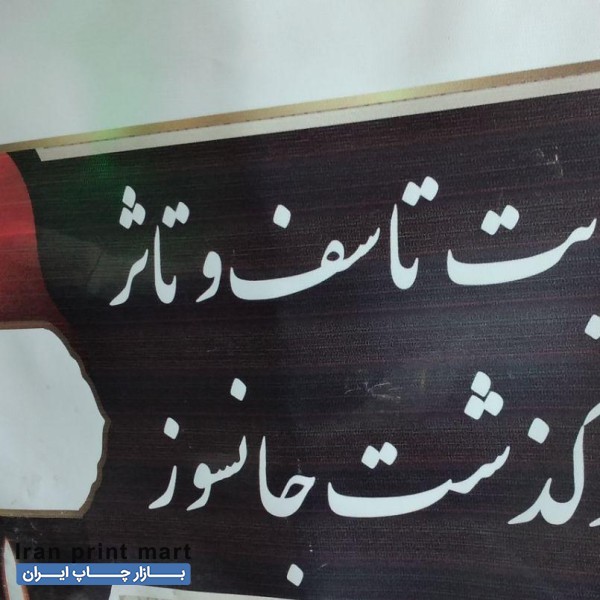 تاسف و تاثر
جانسوز
Iran print mart
بازار چاپ ایران